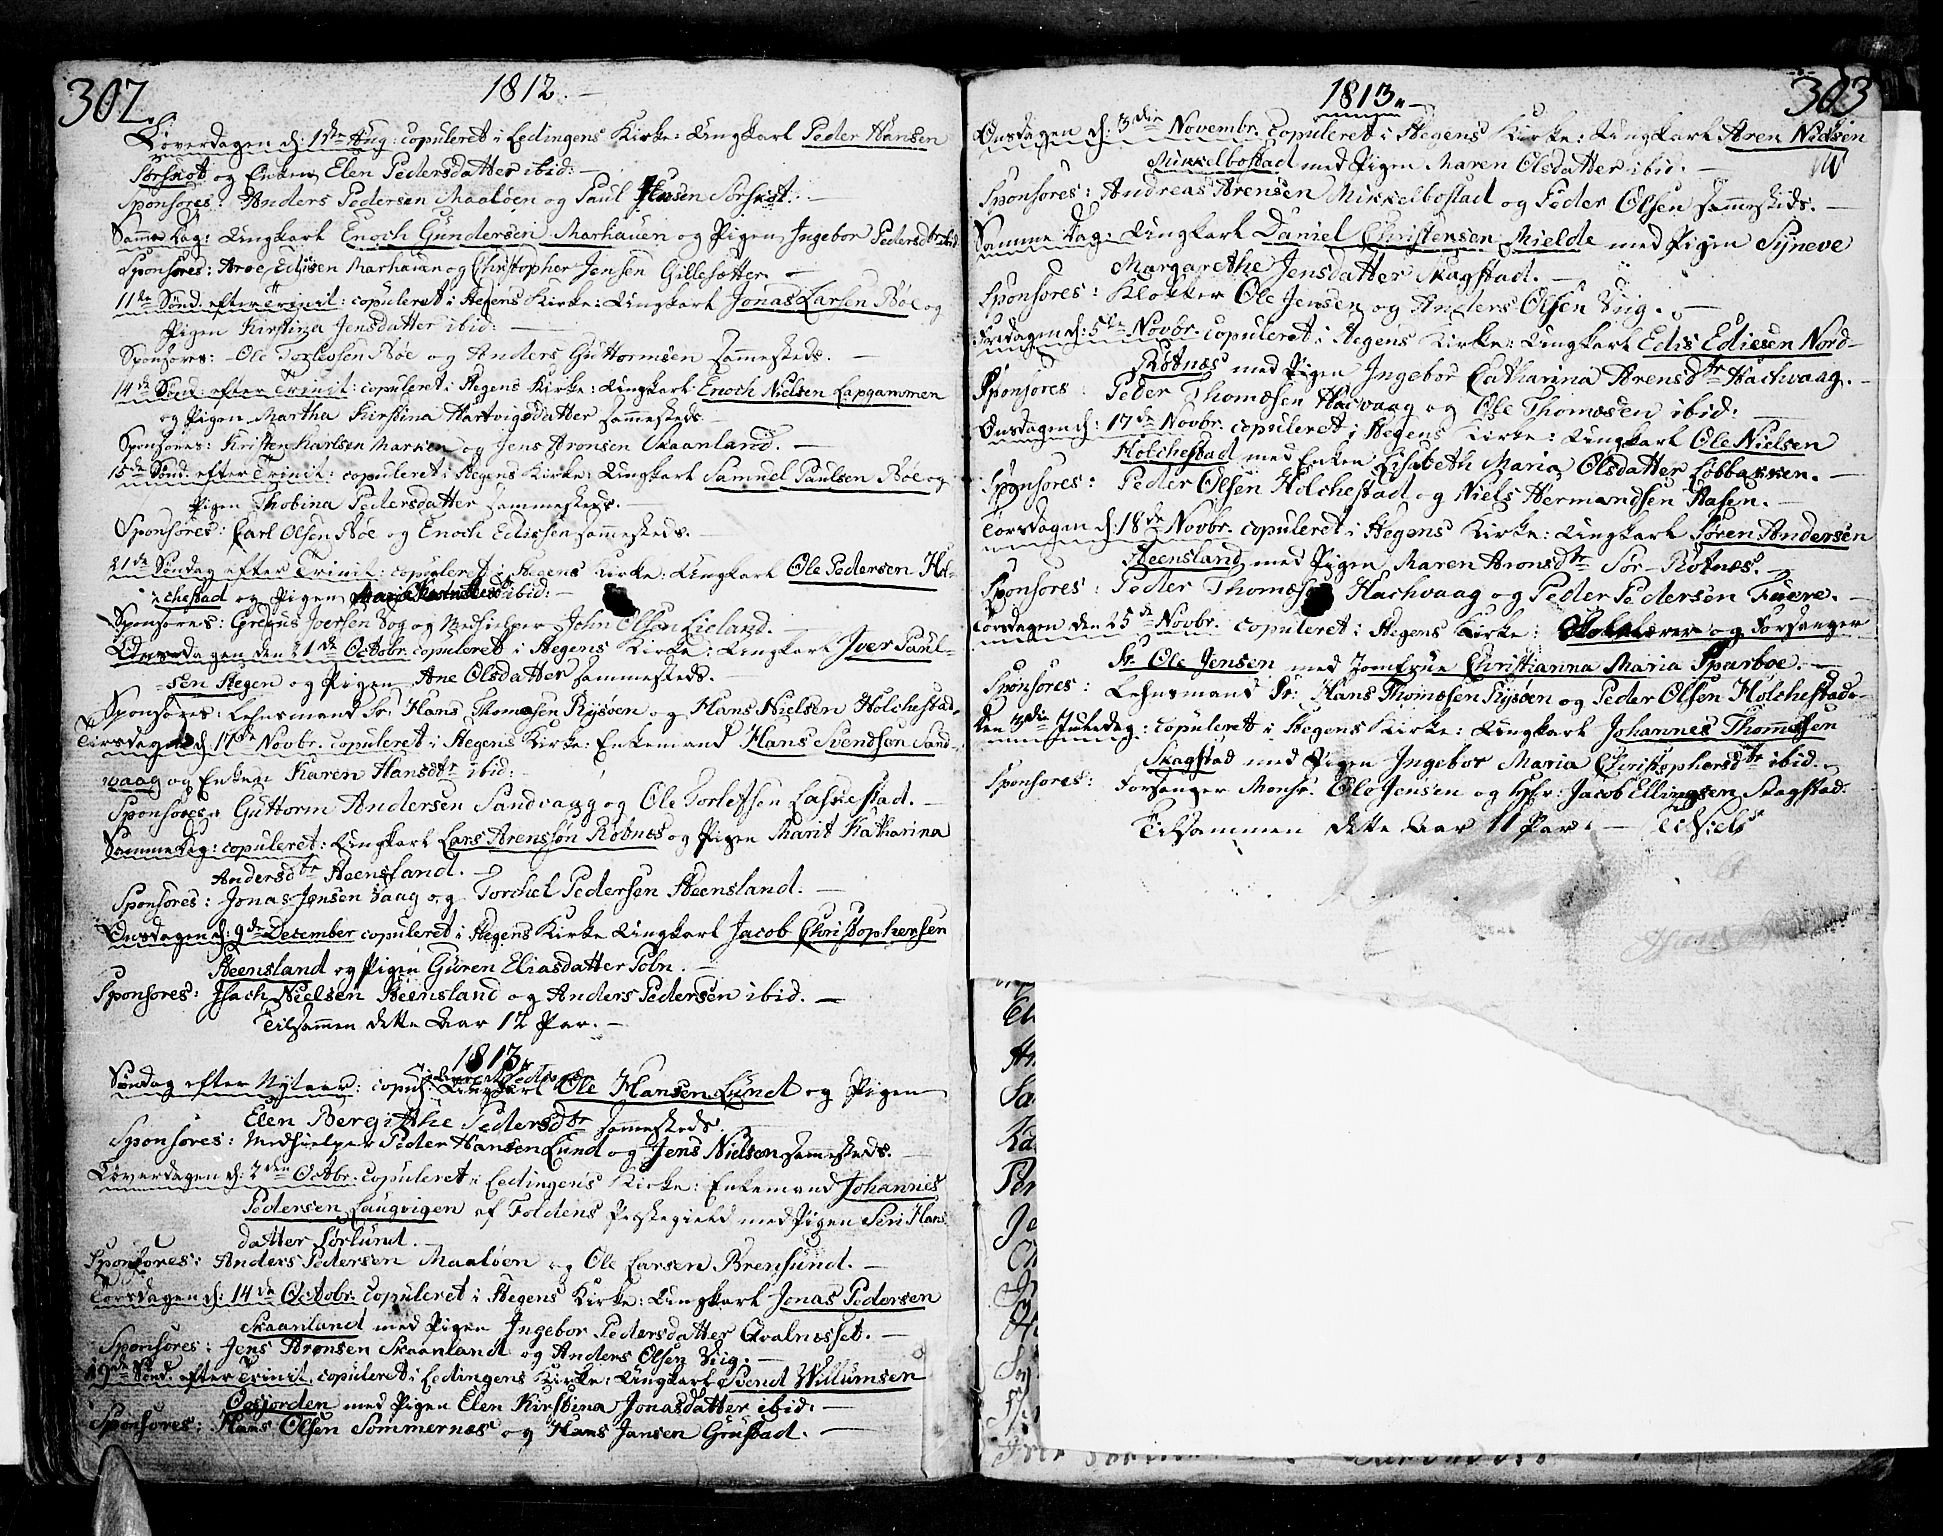 302.
1812.
Løverdagen d: 1ste Aug: copuleret i Lødingens Kirke: Ungkarl Peder Hansen
Sørskot og Enken Elen Pedersdatter ibid:
Sponsores: Anders Pedersen Maaløen og Paul Jensen Sørskot.
Samme Dag: Ungkarl Enoch Gundersen Marhauen og Pigen Ingebor Pedersdtr ibid
Sponsores: Aroe Edisen Marhauen og Christopher Jensen Gillesøtter.
11te Sønd. efter Trinit: copuleret i Hegens Kirke: Ungkarl Jonas Larsen Bøe og
Pigen Kirstina Jensdatter ibid:
Sponsores: Ole Torlevsen Bøe og Anders Guttormsen sammesteds.
14de Sønd: efter Trinit: copuleret i Hegens Kirke: Ungkarl Enoch Nielsen Lapgammen
og Pigen Martha Kirstina Hartvigsdatter sammesteds
Sponsores: Kristen Karlsen Marken og Jens Aronsen Skaanland.
15de Sønd. efter Trinit: copuleret i Hegens Kirke: Ungkarl Samuel Paulsen Bøe og
Pigen Thobina Pedersdatter sammesteds.
Sponsores: Carl Olsen Bøe og Enoch Edissen sammesteds.
21de Søndag efter Trinit: copuleret i Hegens Kirke: Ungkarl Ole Pedersen Hol-
chestad og Pigen ibid:
Sponsores: Gregus Iversen Vog og Medhielper John Olsen Lieland.
Onsdagen den 21de Octobr. copuleret i Hegens Kirke: Ungkarl Iver Paul-
sen Hegen og Pigen Ane Olsdatter sammesteds.
Sponsores: Lehnsmand Sr. Hans Thomæsen Rysøen og Hans Nielsen Holchestad.
Tirsdagen d: 17de Novbr. copuleret i Hegens Kirke: Enkemand Hans Svendsøn Sand-
vaag og Enken Karen Hansdtr ibid:
Sponsores: Guttorm Andersen Sandvaag og Ole Torlefsen Lafvestad.
Samme Dag: copuleret: Ungkarl Lars Arenssøn Røtnæs og Pigen Marit Katharina
Andersdtr Steensland.
Sponsores: Jonas Jensen Vaag og Torchel Pedersen Steensland.
Onsdagen d: 9de December copuleret i Hegens Kirke Ungkarl Jacob Christophersen
Steensland og Pigen Guren Eliasdatter Poln.
Sponsores: Isach Nielsen Steensland og Anders Pedersen ibid.
Tilsammen dette Aar 12 Par.
1813.
Søndag efter Nytaar: copul: Ungkarl Ole Hansen Lund og Pigen
Elen Bergitthe Pedersdtr sammesteds.
Sponsores: Medhielper Peder Hansen Lund og Jens Nielsen sammesteds.
Løverdagen d: 2den Octbr. copuleret i Lødingens Kirke: Enkemand Johannes
Pedersen Laugvigen af Foldens Præstegield med Pigen Seri Hans
datter Sørlund.
Sponsores: Anders Pedersen Maaløen og Ole Larsen Brensund.
Torsdagen d: 14de Octobr. copuleret i Hegens Kirke: Ungkarl Jonas Pedersen
Skaanland med Pigen Ingebor Pedersdatter Qvalnæsset.
Sponsores: Jens Aronsen Skaanland og Anders Olsen Viig.
19de Sønd. efter Trinit. copuleret i Lødingens Kirke: Ungkarl Svend Willumsen
Oxjorden med Pigen Elen Kirstina Jonasdatter ibid:
Sponsores: Hans Olsen Sommernæs og Hans Jansen Grustad.
1813.
303
Onsdagen d: 3die Novembr. copuleret i Hegens Kirke: Ungkarl Aren Nielsen
Mikkelbostad med Pigen Maren Olsdatter ibid:
Sponsores: Andreas Arensen Mikkelbostad og Peder Olsen sammesteds.
Samme Dag: Ungkarl Daniel Christensen Mielde med Pigen Syneve
Margarethe Jensdatter Skagstad.
Sponsores: Klokker Ole Jensen og Anders Olsen Viig.
Fredagen d: 5te Novbr. copuleret i Hegens Kirke: Ungkarl Edis Ediesen Nord-
Røtnæs med Pigen Ingebor Catharina Arensdtr Hachvaag.
Sponsores: Peder Thomæsen Hacvaag og Ole Thomæsen ibid:
Onsdagen d: 17de Novbr. copuleret i Hegens Kirke: Ungkarl Ole Nielsen
Holchestad med Enken Lisabeth Maria Olsdatter Løbbassen.
Sponsores: Peder Olsen Holchestad og Niels Hermandsen Hasen.
Torsdagen d: 18de Novbr. copuleret i Hegens Kirke: Ungkarl Søren Andersen
Steensland med Pigen Maren Aronsdtr Sør-Røtnæs.
Sponsores: Peder Thomæsen Hachvaag og Peder Pedersen Fuere.
Torsdagen den 25de Novbr. copuleret i Hegens Kirke: Skolelærer og Forsanger
Sr. Ole Jensen med Jomfrue Christianna Maria Sparboe.
Sponsores: Lehnsmand Sr: Hans Thomæsen Rysøen og Peder Olsen Holchestad.
Den 3die Juledag: copuleret i Hegens Kirke: Ungkarl Johannes Thomesen
Skagstad med Pigen Ingebor Maria Christophersdtr ibid:
Sponsores: Forsanger Monsr. Ole Jensen og Hr: Jacob Ellingsen Skagstad.
Tilsammen dette Aar 11 Par.